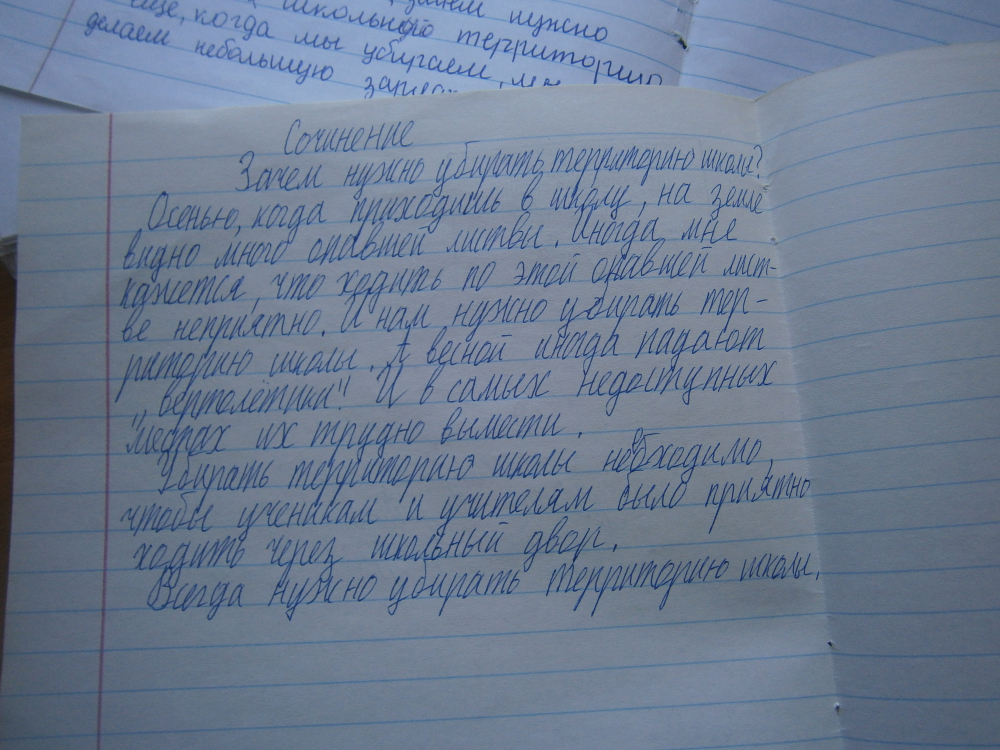 нужно
школьного территорию
еще, когда мы убираем, мы
делаем небольшую
Сочинение
Зачем нужно убирать территорию школы?
Осенью, когда приходишь в школу, на земле
видно много опавшей листвы. Иногда мне
кажется, что ходить по этой опавшей лист-
ве неприятно. И нам нужно убирать тер-
риторию школы. А весной иногда падают
„вертолётики". И в самых недоступных
местах их трудно вымести.
Убирать территорию школы необходимо,
чтобы ученикам и учителям было приятно
ходить через школьный двор.
Всегда нужно убирать территорию школы.